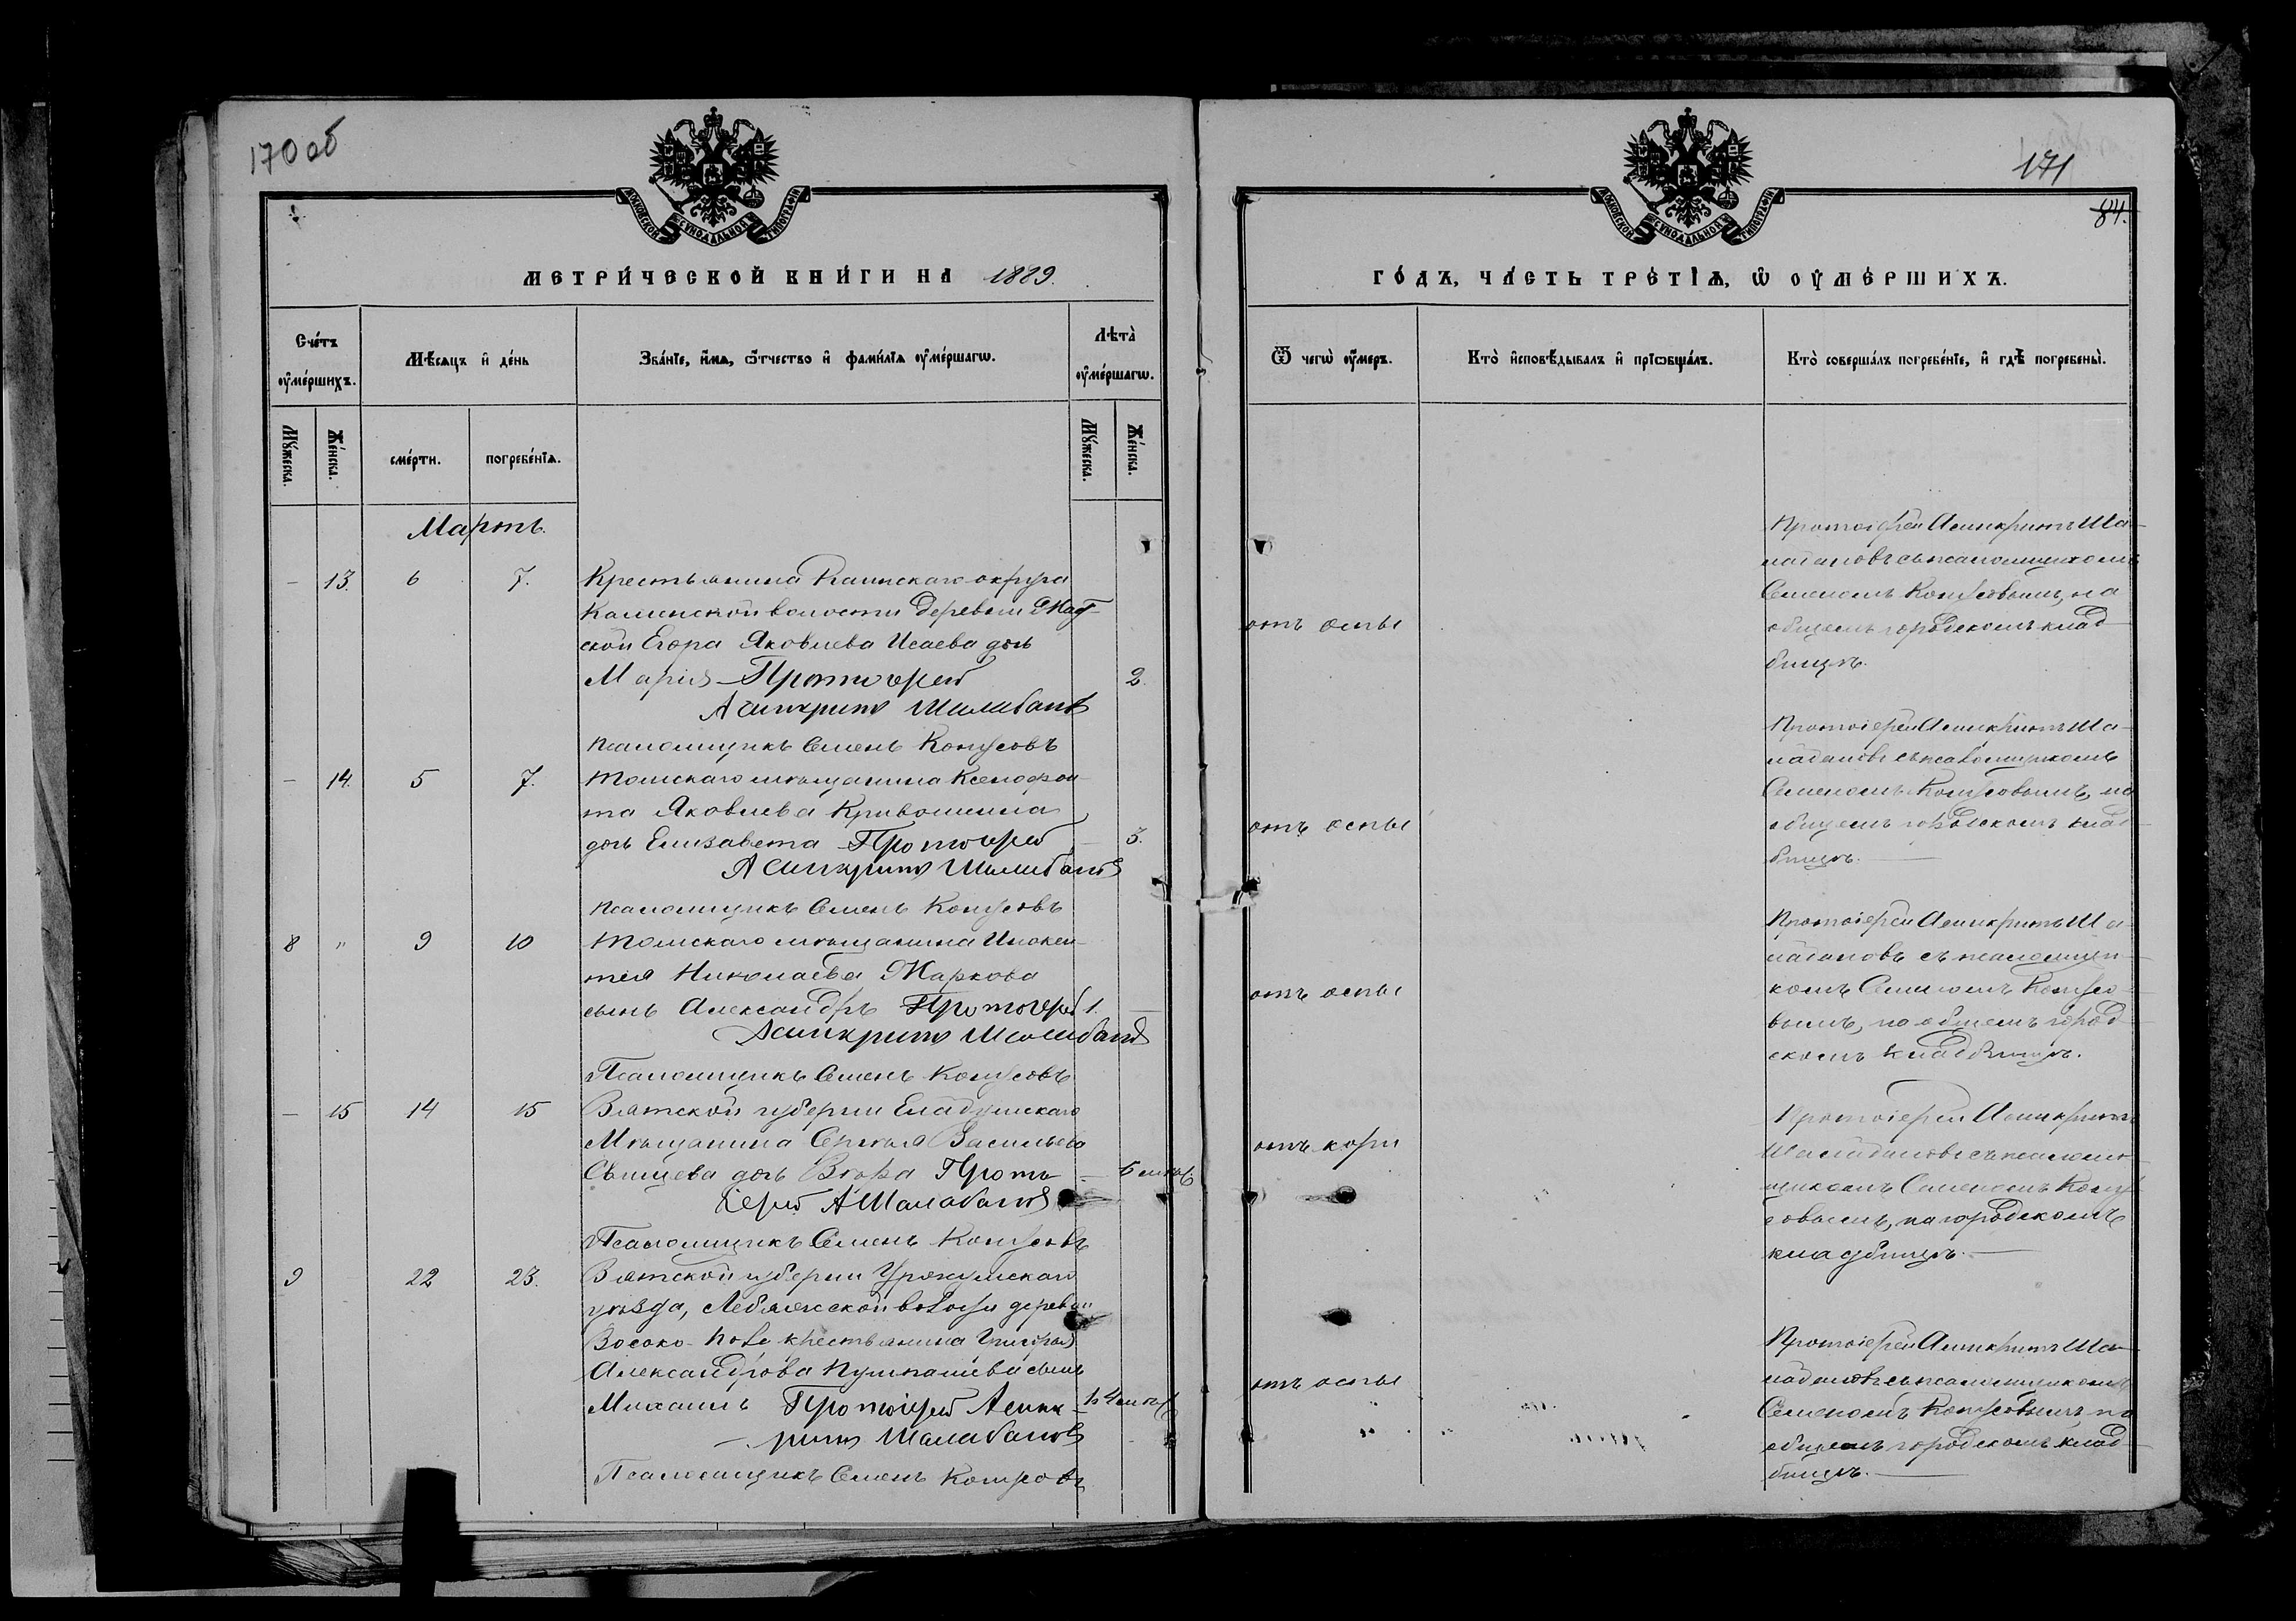 170 об
МОСКОВСКОЙ СѴНОДАЛЬНОЙ ТИПОГРАФІИ
МЕТРИ́ЧЕСКОЙ КНИ́ГИ НА 1889.
Сче́тъ ᲂу҆ме́ршихъ.
Мѣ́сяцъ и҆ де́нь
Зва́нїе, и҆́мѧ, ѻ҆́тчество и҆ фами́лїѧ ᲂу҆ме́ршагѡ.
Лѣта̀ ᲂу҆ме́ршагѡ.
Мꙋ́жеска.
Же́нска.
сме́рти.
погребе́нїѧ.
Мꙋ́жеска.
Же́нска.
Мартъ.
— 13. 6 7. Крестьянина Каинскаго округа
Каминской волости деревни
ской Егора Яковлева Исаева дочь
Марія Протоіерей 2.
Асинкритъ Шалабановъ
Псаломщикъ Семенъ Конусовъ
— 14. 5 7. Томскаго мѣщанина Ксенофон-
та Яковлева Кривошеина
дочь Елизавета Протоіерей — 3.
Асинкритъ Шалабановъ
Псаломщикъ Семенъ Конусовъ
8 " 9 10 Томскаго мѣщанина Инокен-
тія Николаева Жаркова
сынъ Александръ Протоіерей 1. —
Асинкритъ Шалабановъ
Псаломщикъ Семенъ Конусовъ
— 15 14 15 Вятской губерніи Елабужскаго
Мѣщанина Сергѣя Васильева
дочь Вѣра Прото- — 6 мѣс.
іерей А Шалабановъ
Псаломщикъ Семенъ Конусовъ
9 22 23. Вятской губерніи Уржумскаго
уѣзда, Лебяжской волости деревни
крестьянина Григорія
Александрова сынъ
Михаилъ Протоіерей Асинк-
ритъ Шалабановъ
Псаломщикъ Семенъ Конусовъ
171
84.
МОСКОВСКОЙ СѴНОДАЛЬНОЙ ТИПОГРАФІИ
ГО́ДЪ, ЧА́СТЬ ТРЕ́ТЇѦ, Ѡ҆ ОУ҆МЕ́РШИХЪ.
Ѿ чегѡ̀ ᲂу҆́меръ.
Кто̀ и҆сповѣ́дывалъ и҆ прїѡбща́лъ.
Кто̀ соверша́лъ погребе́нїе, и҆ гдѣ̀ погребены̀.
отъ оспы
Протоіерей Асинкритъ Ша-
лабановъ съ псаломщикомъ
Семеномъ Конусовымъ, на
общемъ городскомъ клад-
бищѣ.
отъ оспы
Протоіерей Асинкритъ Ша-
лабановъ съ псаломщикомъ
Семеномъ Конусовымъ, на
общемъ городскомъ клад-
бищѣ.
отъ оспы
Протоіерей Асинкритъ Ша-
лабановъ съ псаломщи-
комъ Семеномъ Конусо-
вымъ, на общемъ город-
скомъ кладбищѣ.
отъ кори
Протоіерей Асинкритъ
Шалабановъ съ псалом-
щикомъ Семеномъ Конус-
овымъ, на городскомъ
кладбищѣ.
отъ оспы
Протоіерей Асинкритъ Ша-
лабановъ съ псаломщикомъ
Семеномъ Конусовымъ на
общемъ городскомъ клад-
бищѣ.